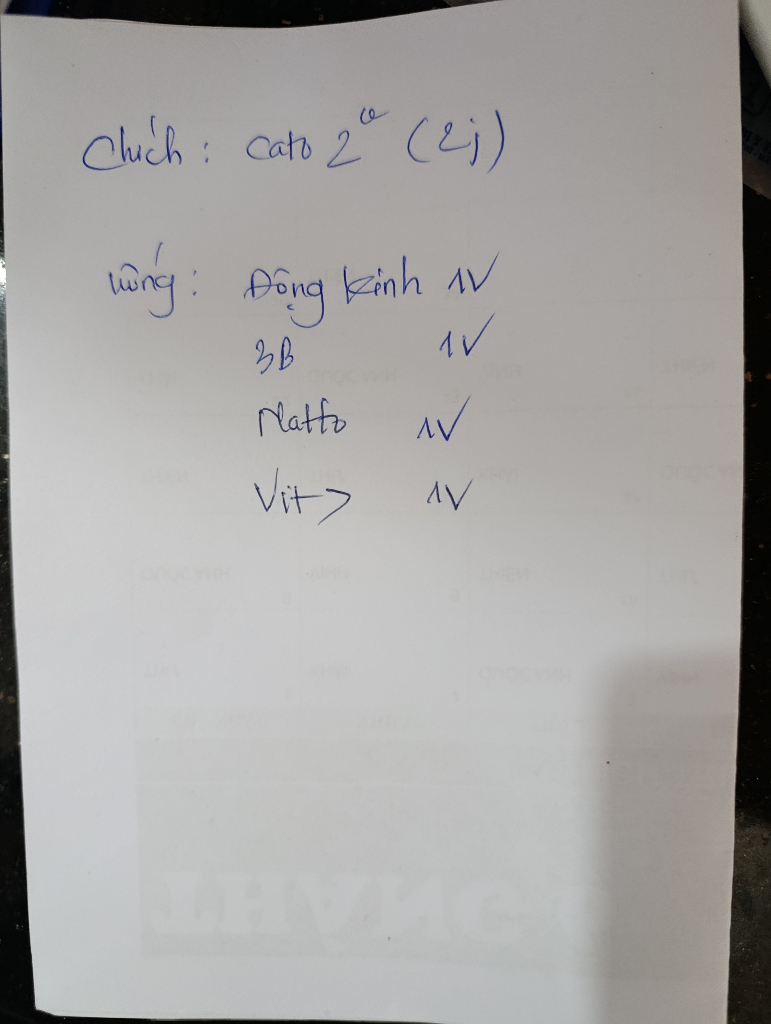 Chích : Cato 2 cc (2j)
Uống : Động kinh 1V
3B 1V
Natto 1V
Vit 1V